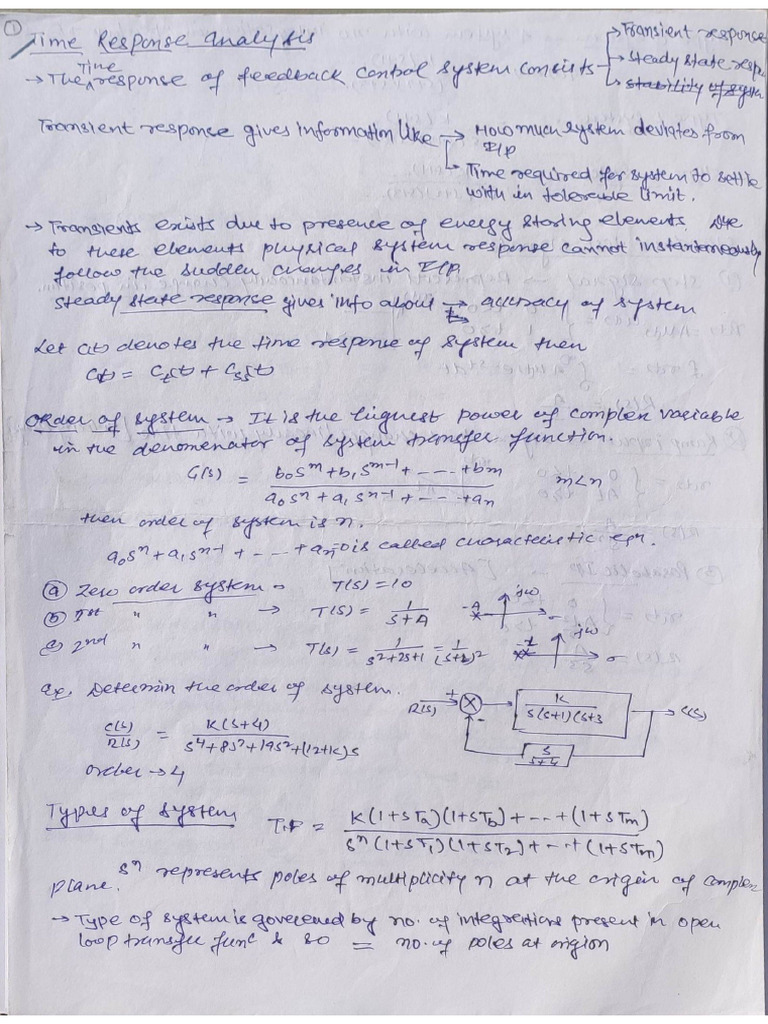 ①
Time Response Analysis
→ The Time response of feedback control system consists → Transient response
→ Steady state resp
→ stability of sys
Transient response gives information like → How much system deviates from
I/P
→ Time required for system to settle
with in tolerable limit.
→ Transients exists due to presence of energy storing elements. Due
to these elements physical system response cannot instantaneously
follow the sudden changes in I/P.
Steady state response gives info about → accuracy of system
Let c(t) denotes the time response of system then
c(t) = Ct(t) + Css(t)
Order of system → It is the highest power of complex variable
in the denomenator of system transfer function.
G(s) = (b₀s^m + b₁s^(m-1) + ---- + bm) / (a₀s^n + a₁s^(n-1) + ---- + an) m<n
then order of system is n.
a₀s^n + a₁s^(n-1) + --- + an=0 is called characteristic eqn.
(a) Zero order system → T(s) = 10
(b) 1st " " → T(s) = 1/(s+A) -A jω σ
(c) 2nd " " → T(s) = 1/(s²+2s+1) = 1/(s+1)² -1 jω σ
Ex. Determin the order of system.
R(s) + - K/(s(s+1)(s+3) C(s)
s/(s+4)
C(s)/R(s) = K(s+4)/(s⁴+8s³+19s²+(12+K)s
order → 4
Types of system
T.F = K(1+sTa)(1+sTb)+---+(1+sTm) / s^n(1+sT₁)(1+sT₂)+--+(1+sTm)
s^n represents poles of multiplicity n at the origin of complex
plane.
→ Type of system is governed by no. of integrations present in open
loop transfer func & so = no. of poles at origion